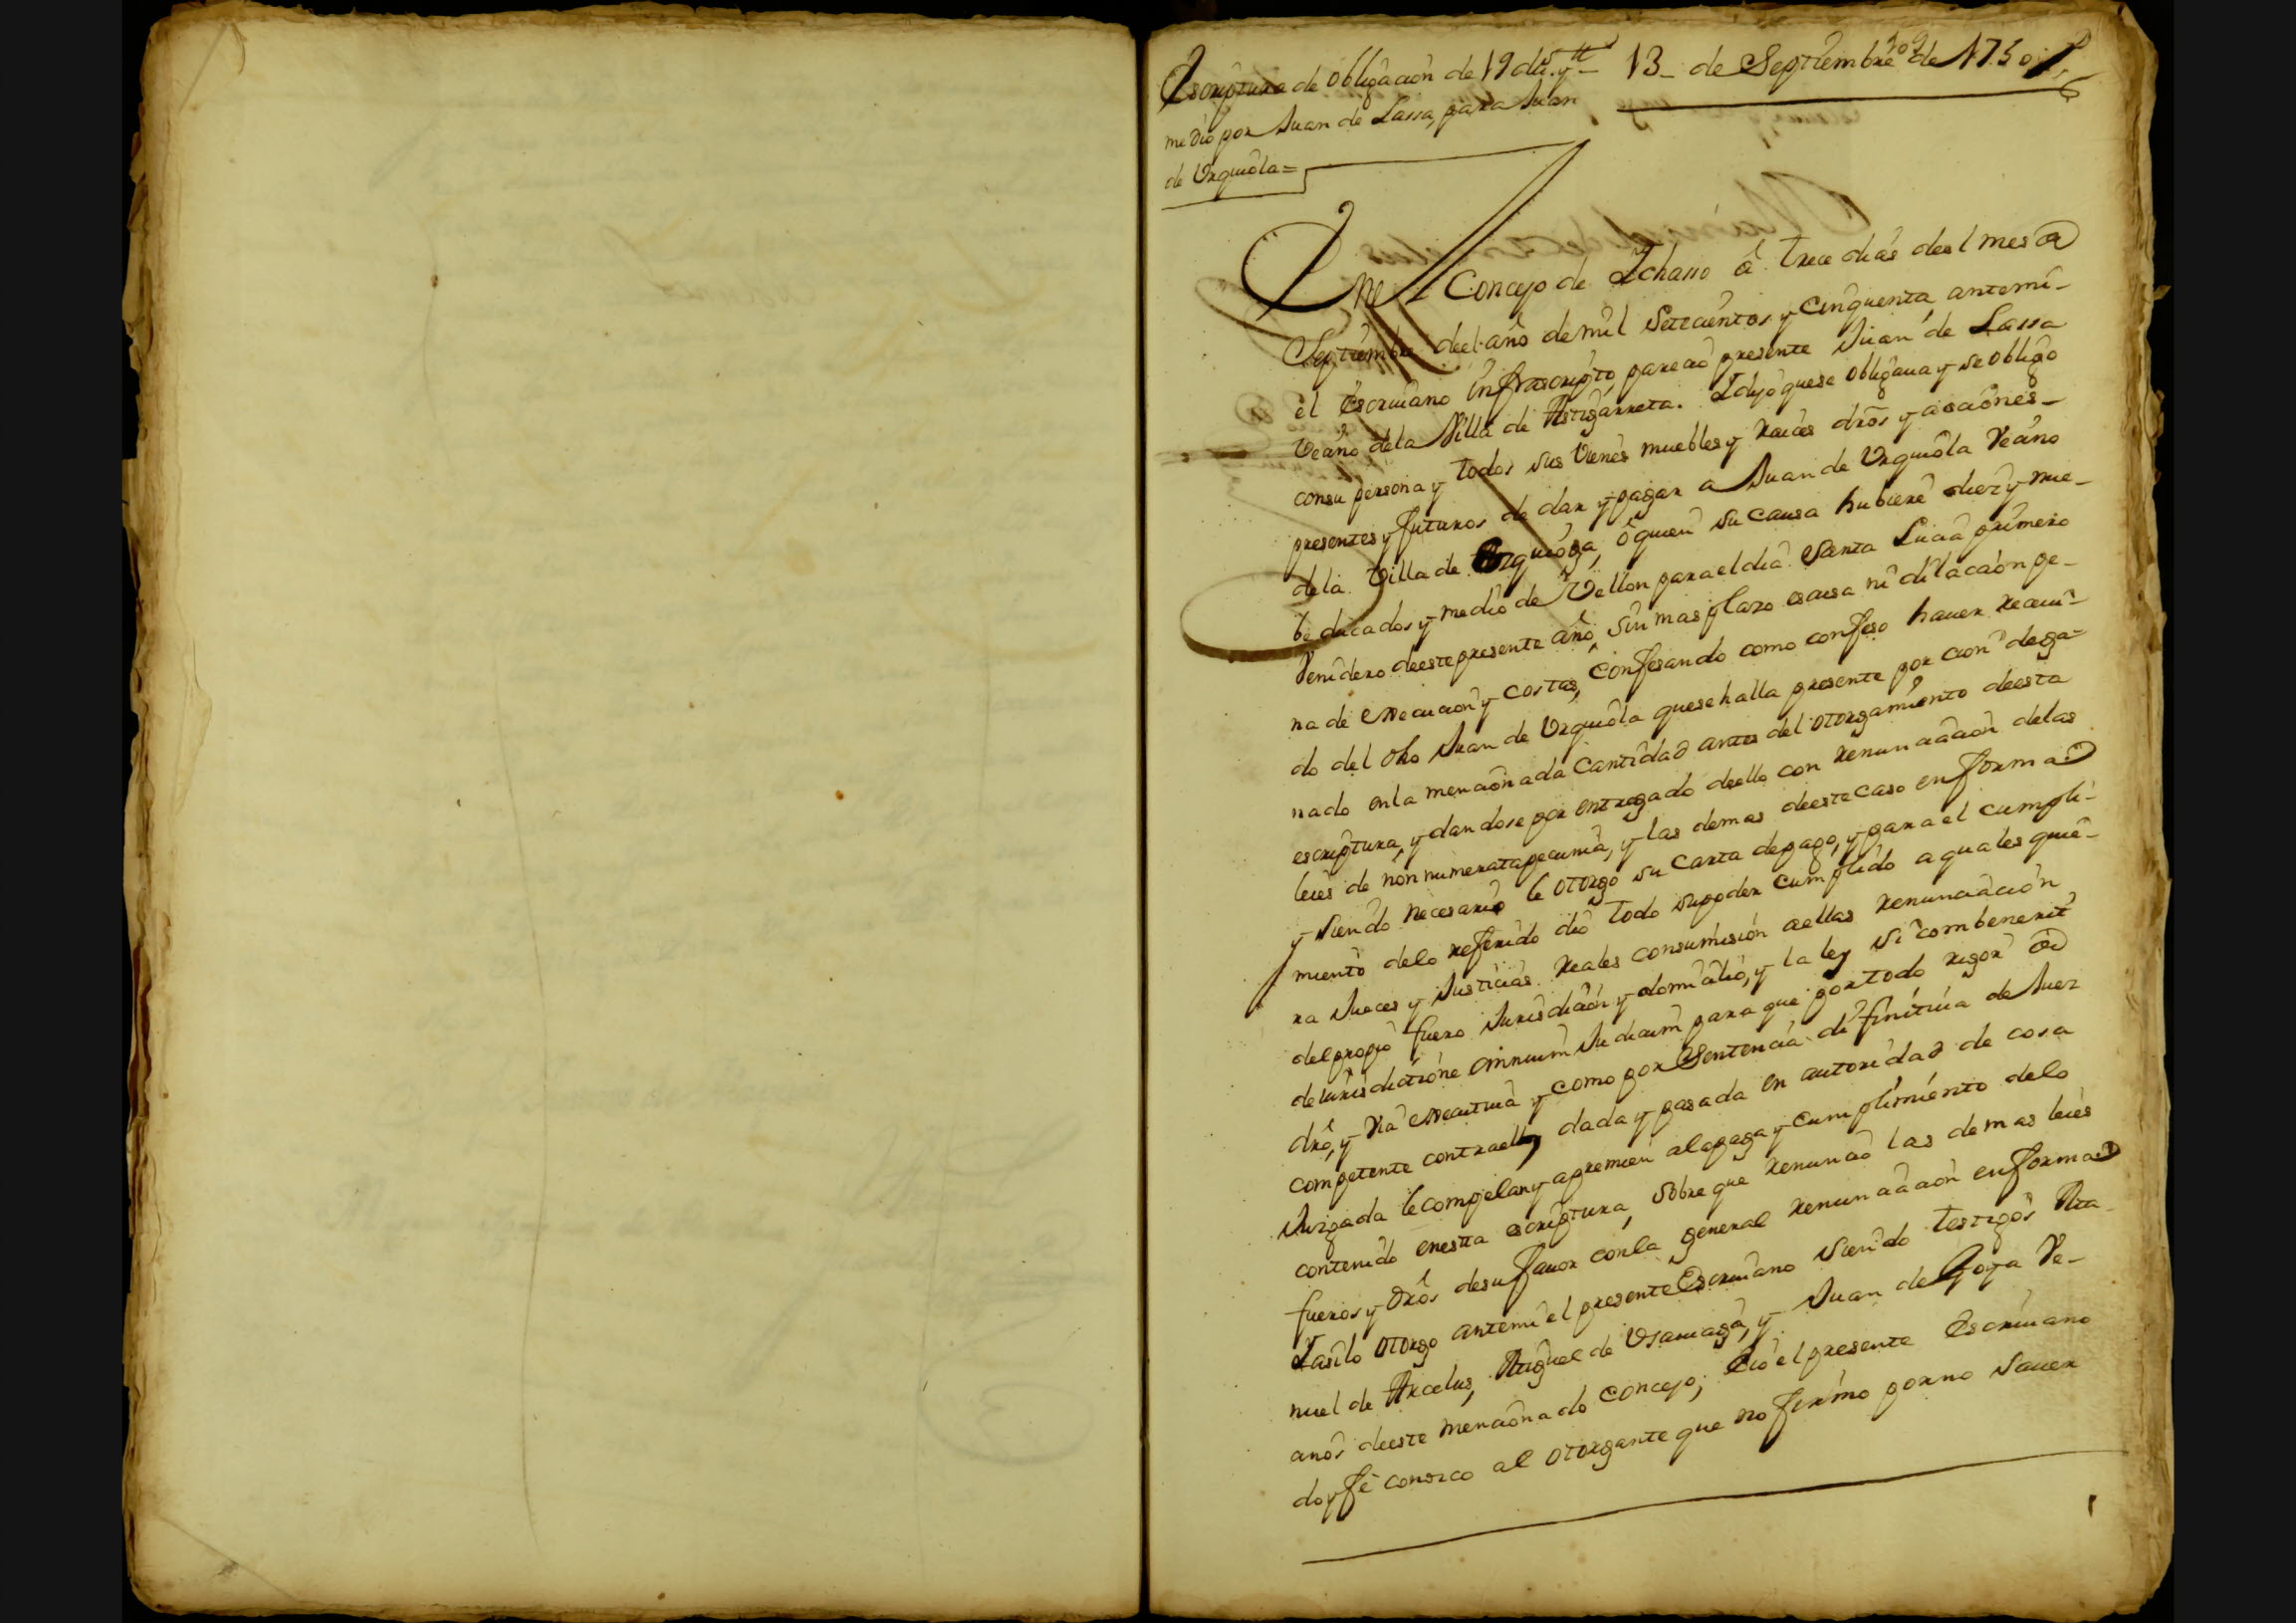 Escriptura de obligacion de 19 du.s y
medio por Juan de Lassa, para Juan
de Urquiola=
13- de Septiembre de 1750
109
En el Concejo de Ychasso â trece dias deel mes de
Septiembre deel año de mil Setecientos y Cinquenta, antemi-
el escriuano infrascripto parecio presente Juan de Lassa
vecino dela Villa de Astigarreta. Y dijo quese obligaua y se obligo
consu persona y todos sus vienes muebles y raices drõs y acciones-
presentes y futuros de dar y pagar a Juan de Urquiola Vecino
dela Villa de ôquien su causa hubiere diez y nue-
be ducados y medio de Vellon para el dia Santa Lucia primero
Venidero deeste presente año, sin mas plazo escusa ni dilacion pe-
na de execucion y costas, confesando como confeso hauer reciui-
do del dho Juan de Urquiola quese halla presente por
nado enla mencionada Cantidad antes del otorgamiento deesta
escriptura, y dandose por entregado deello con renunciacion delas
leies de non numerata pecunia, y las demas deeste caso en forma
y siendo necesario le otorgo su Carta de pago, y para el cumpli-
miento delo referido dio todo supoder cumplido a quales quie-
ra Jueces y Justicias reales consumision aellas renunciacion
del propio fuero Jurisdicion y domicilio, y la ley Si combenerit
de Jurisdictione omnium Judicum para que por todo rigor de
drõ, y via executiua y como por Sentencia difinitiua de Juez
competente contraello dada y pasada en autoridad de cosa
Juzgada le compelan y apremien ala paga y cumplimiento delo
contenido enesta escriptura, sobre que renuncio las demas leies
fueros y drõs desu fauor conla general renunciacion en forma
Y asilo otorgo antemi el presente Escriuano siendo testigos Ma-
nuel de Arcelus, Miguel de Usaniaga, y Juan de Goya Ve-
cinos deeste mencionado concejo; Eio el presente Escriuano
doy fe conozco al otorgante que no firmo por no sauer